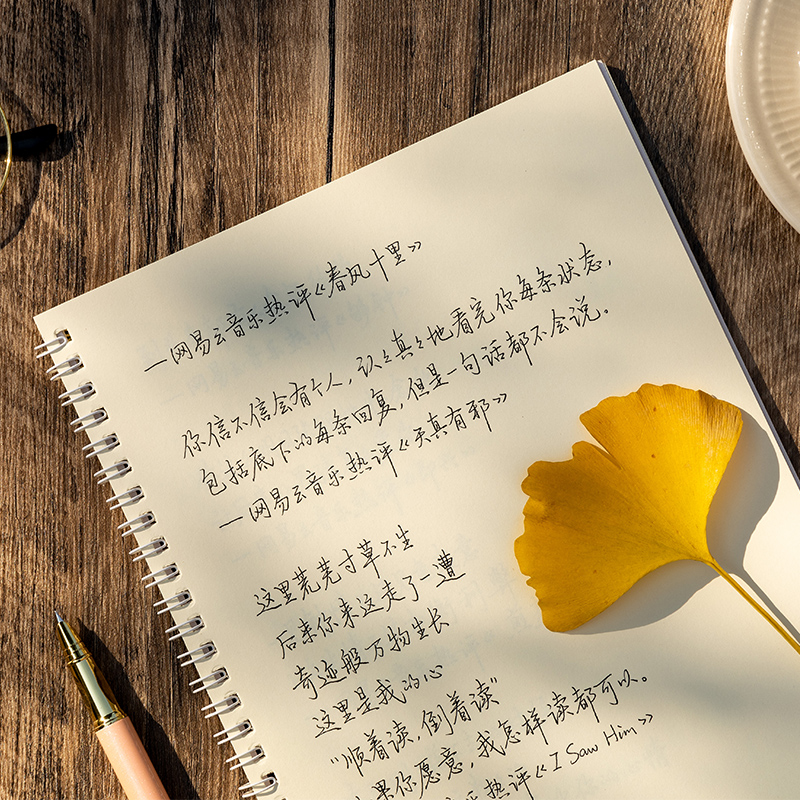 —网易云音乐热评《春风十里》
你信不信会有个人,认々真々地看完你每条状态,
包括底下的每条回复,但是一句话都不会说。
—网易云音乐热评《天真有邪》
这里荒芜寸草不生
后来你来这走了一遭
奇迹般万物生长
这里是我的心
"顺着读,倒着读"
果你愿意,我怎样读都可以。
乐热评《I Saw Him》